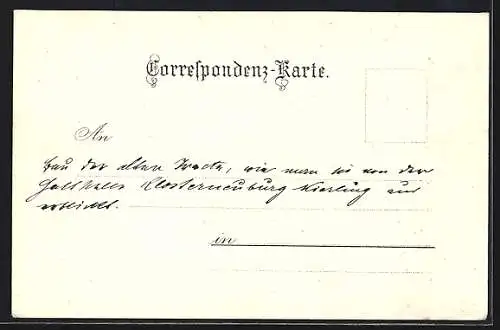 Correspondenz-Karte.
An
Bau der alten Tracte, wie man sie von der
Haltstelle Klosterneuburg Kierling aus
erblickt.
in